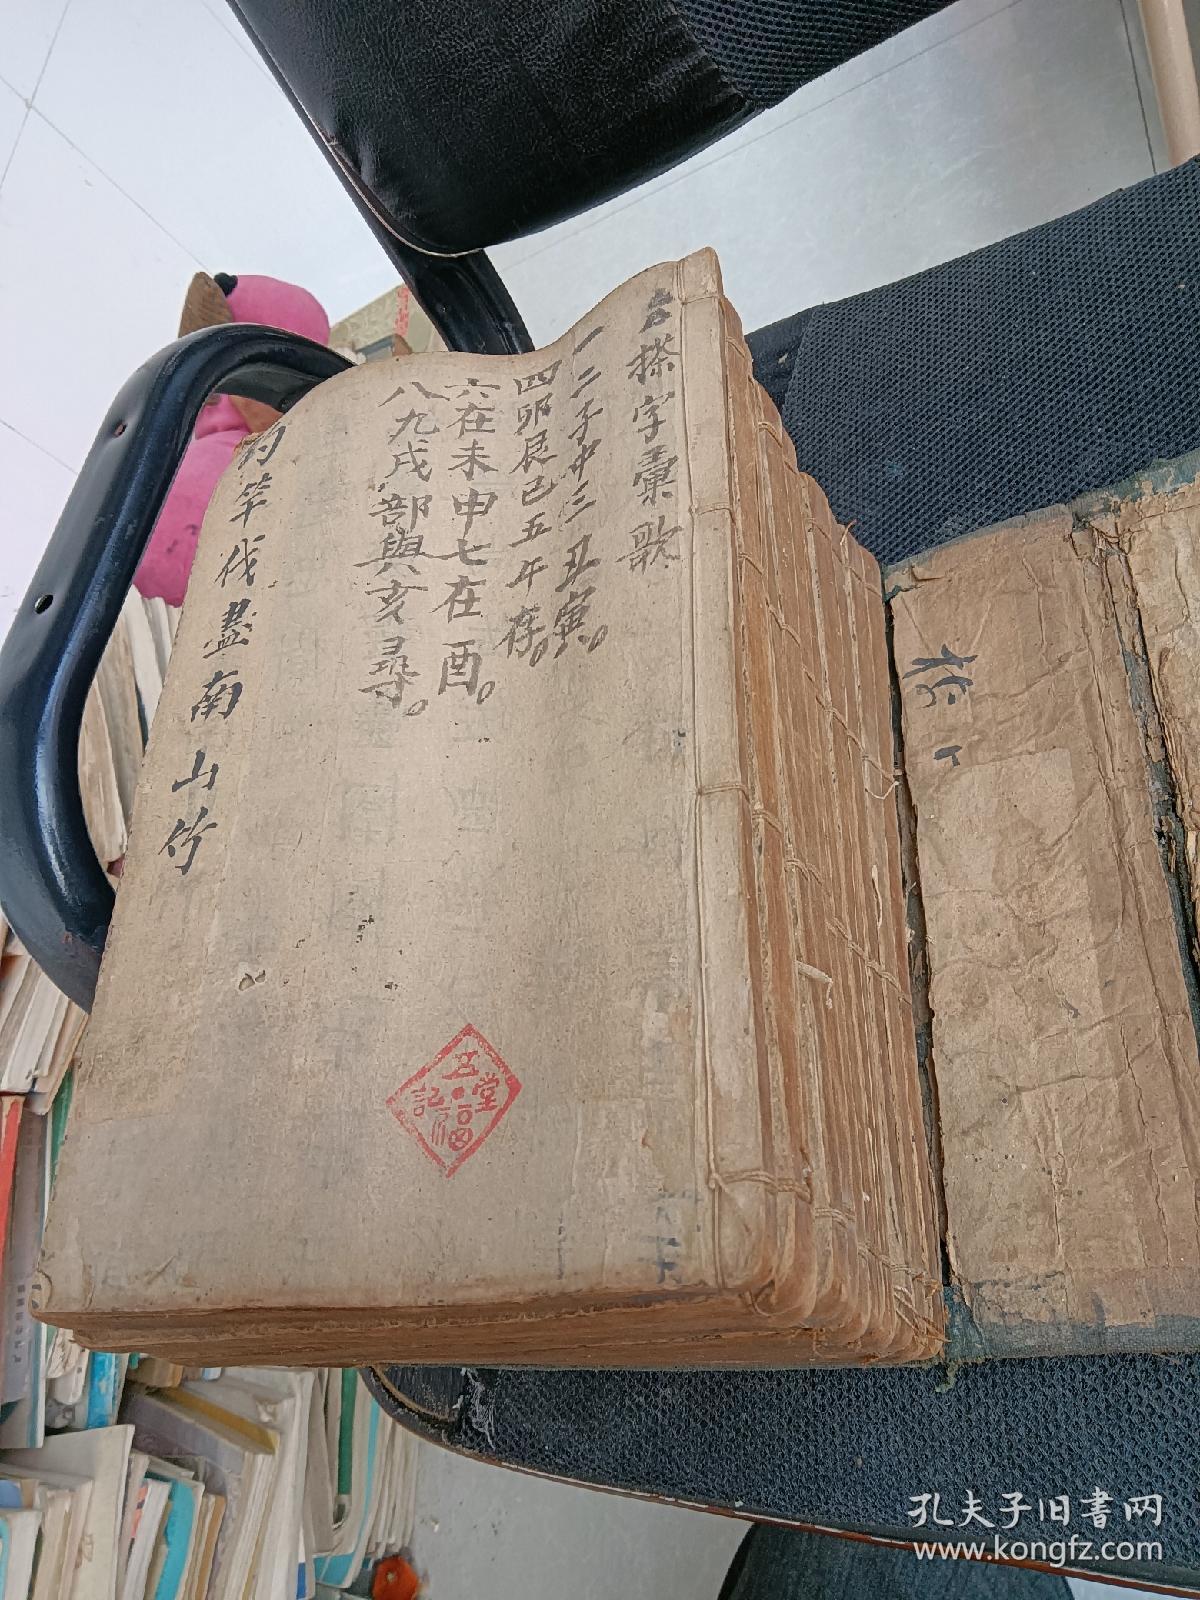 搽字彙歌
一二子中三丑寅。
四卯辰巳五午存。
六在未申七在酉。
八九戌部與亥尋。
竿伐盡南山竹
五福堂記
孔夫子旧書网
www.kongfz.com